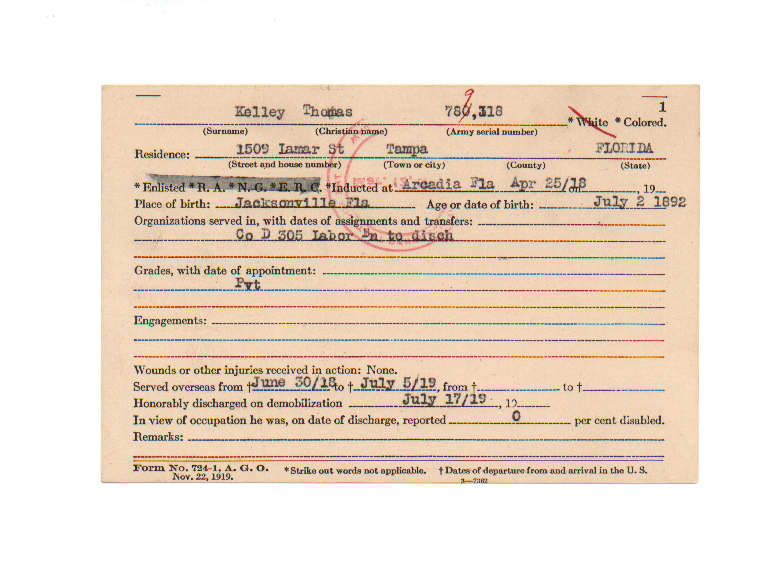 Kelley Thomas 780,318 9 1
* White * Colored.
(Surname) (Christian name) (Army serial number)
Residence: 1509 Lamar St Tampa FLORIDA
(Street and house number) (Town or city) (County) (State)
* Enlisted * R. A. * N. G. * E. R. C. *Inducted at Arcadia Fla Apr 25/18 on , 19
Place of birth: Jacksonville Fla Age or date of birth: July 2 1892
Organizations served in, with dates of assignments and transfers:
Co D 305 Labor Bn to disch
Grades, with date of appointment:
Pvt
Engagements:
Wounds or other injuries received in action: None.
Served overseas from † June 30/18 to † July 5/19, from † to †
Honorably discharged on demobilization July 17/19, 19
In view of occupation he was, on date of discharge, reported 0 per cent disabled.
Remarks:
Form No. 724-1, A. G. O. *Strike out words not applicable. † Dates of departure from and arrival in the U. S.
Nov. 22, 1919. 3—7302